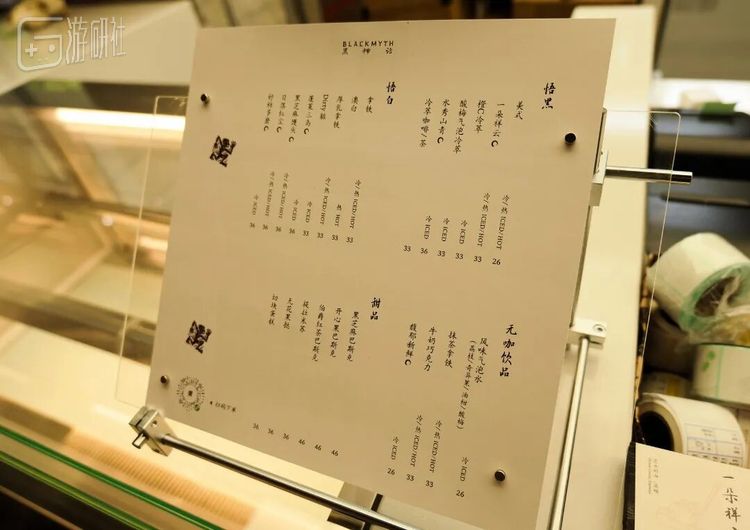 游研社
BLACKMYTH
黑神话
悟黑
美式 冷/热 ICED/HOT 26
一朵祥云 冷/热 ICED/HOT 33
橙C冷萃 冷 ICED 33
酸梅气泡冷萃 冷 ICED 33
水秀山青 冷 ICED 36
冷萃咖啡/茶 33
悟白
拿铁 冷/热 ICED/HOT 33
澳白 热 HOT 33
厚乳拿铁 冷/热 ICED/HOT 33
Dirty 冷 ICED 33
蓬莱三岛 冷 ICED 36
黑芝麻馒头 冷/热 ICED/HOT 36
日落红尘 冷/热 ICED/HOT 36
好柿多磨 冷 ICED 36
元咖饮品
风味气泡水
(荔枝/奇异果/油柑/酸梅) 冷 ICED 26
抹茶拿铁 冷/热 ICED/HOT 33
牛奶巧克力 冷/热 ICED/HOT 33
馥郁新鲜 冷 ICED 26
甜品
黑芝麻巴斯克 46
开心果巴斯克 46
伯爵红茶巴斯克 46
提拉米苏 36
无花果挞 36
切块蛋糕 36
扫码下单
一朵祥